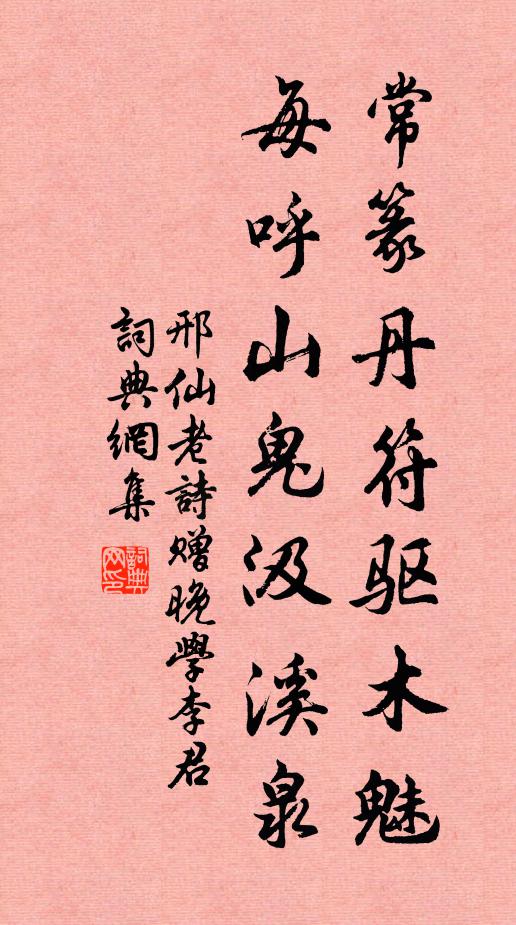 常篆丹符驱木魅
每呼山鬼汲溪泉
邢仙老詩贈晚學李君
詞典網集
詞典網印